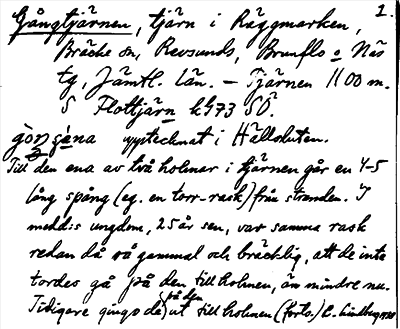 Gångtjärnen, tjärn i Räggmarken, 1.
Bräcke sn, Revsunds, Brunflo o Näs
tg, Jämtl. län. – Tjärnen 1100 m.
S Flottjärn k 473 SÖ.
upptecknat i Hällsluten.
Till den ena av två holmar i tjärnen går en 4-5
lång spång (eg. en torr-rask) från stranden. I
medd:s ungdom, 25 år sen, var samma rask
redan då så gammal och bräcklig, att de inte
tordes gå på den till holmen, än mindre nu.
Tidigare gings de på den ut till holmen (forts.) E. Lindberg